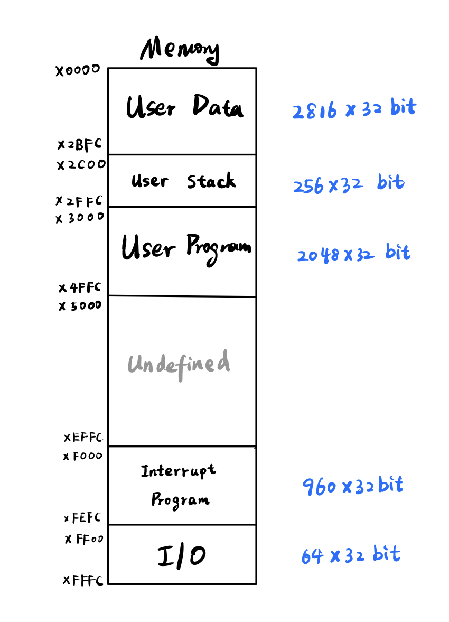 Memory
x0000
User Data
2816 x 32 bit
x2BFC
x2C00
User Stack
256 x 32 bit
x2FFC
x3000
User Program
2048 x 32 bit
x4FFC
x5000
Undefined
xEFFC
xF000
Interrupt
Program
960 x 32 bit
xFEFC
xFF00
I/O
64 x 32 bit
xFFFC